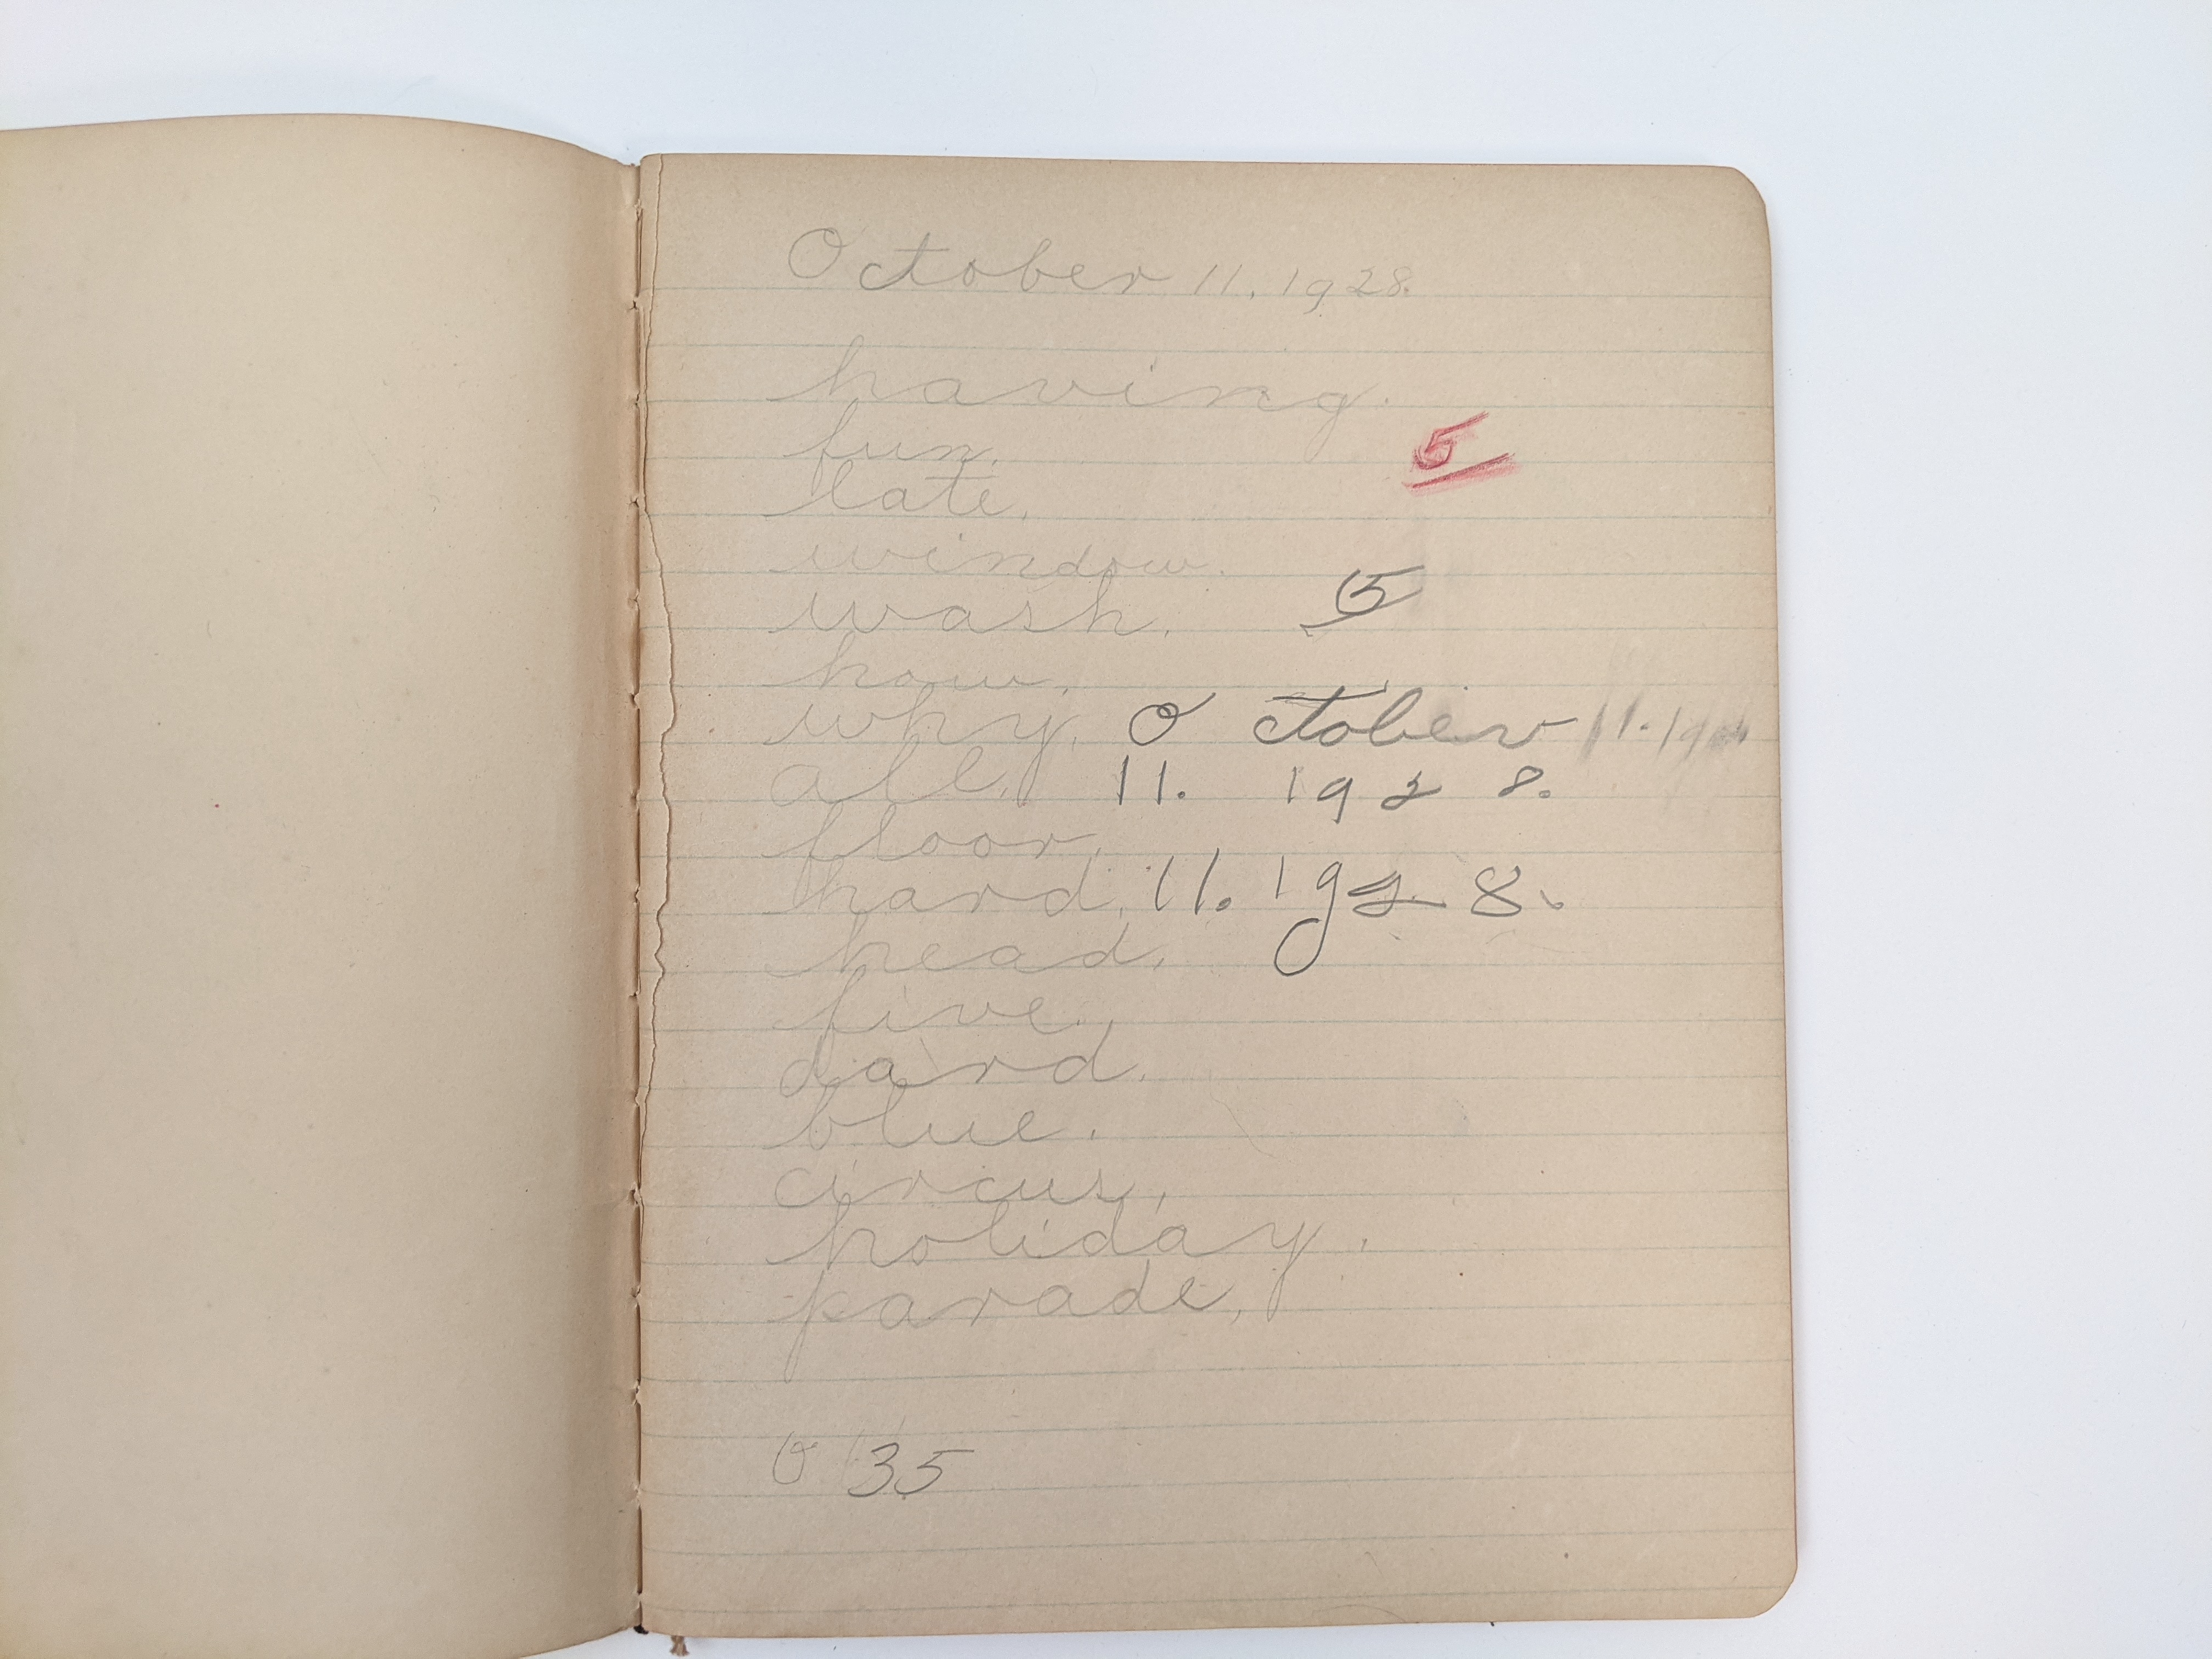 October 11. 1928.
having.
fun.
5
late.
window.
5
wash.
how.
why. October 11. 19
all. 11. 1928.
floor.
hard. 11. 1928.
head.
five.
dard.
blue.
circus.
holiday.
parade.
0 35